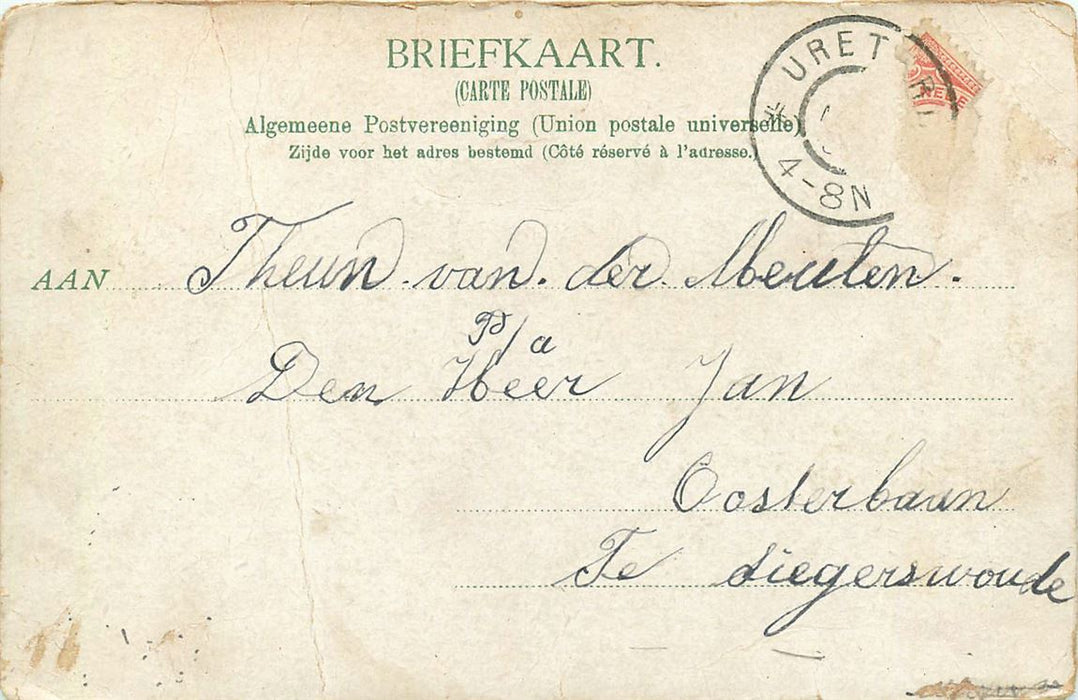 BRIEFKAART.
(CARTE POSTALE)
Algemeene Postvereeniging (Union postale universelle)
Zijde voor het adres bestemd (Côté réservé à l'adresse.)
URET
4-8N
AAN Theun van der Meulen.
P/a
Den Heer Jan
Oosterbaan
Te Siegerswoude